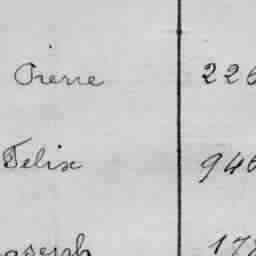 Pierre 226
Felix 946
Joseph 172